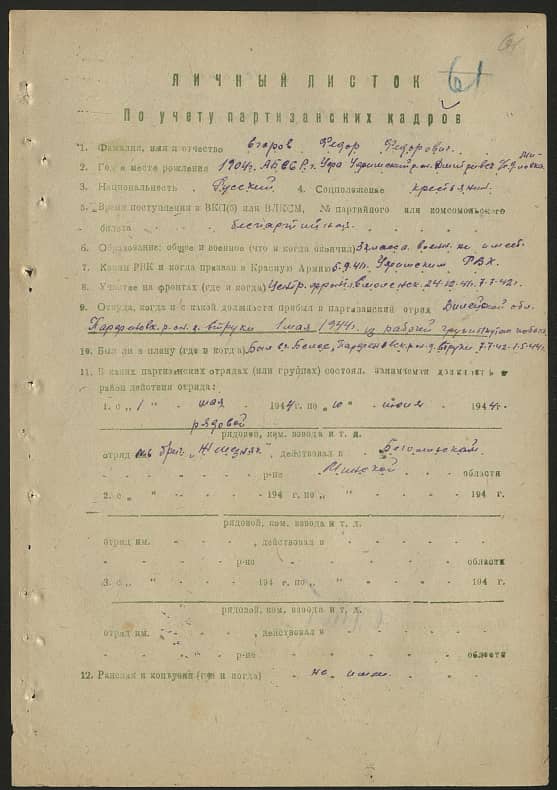 61
61
ЛИЧНЫЙ ЛИСТОК
По учету партизанских кадров
1. Фамилия, имя и отчество Егоров Федор Федорович.
2. Год и место рождения 1904г. АБССР. г. Уфа Уфимский р-он
3. Национальность Русский. 4. Соцположение крестьянин.
5. Время поступления в ВКП(б) или ВЛКСМ, № партийного или комсомольского
билета беспартийный.
6. Образование: общее и военное (что и когда окончил) 3 класса, воен. не имеет.
7. Каким РВК и когда призван в Красную Армию 5.9.41г. Уфимским РВК.
8. Участие на фронтах (где и когда) Центр. фронт Смоленск 24.12.41г. 7.7.42г.
9. Откуда, когда и с какой должности прибыл в партизанский отряд Вилейской обл.
р-он. д. 1 мая 1944г. из рабочей
10. Был ли в плену (где и когда) Был р-он д. 7.7.42-1.5.44г.
11. В каких партизанских отрядах (или группах) состоял. Занимаемая должность и
район действия отряда:
1. с „ 1 " мая 1944 г. по „ 10 " июля 1944 г.
рядовой
рядовой, ком. взвода и т. д.
отряд бриг. „Железняк", действовал в Бегомльском
р-не Минской области
2. с „ " 194 г. по „ " 194 г.
рядовой, ком. взвода и т. д.
отряд им. , действовал в
р-не области
3. с „ " 194 г. по „ " 194 г.
рядовой, ком. взвода и т. д.
отряд им. , действовал в
р-не области
12. Ранения и контузии (где и когда) не имеет.